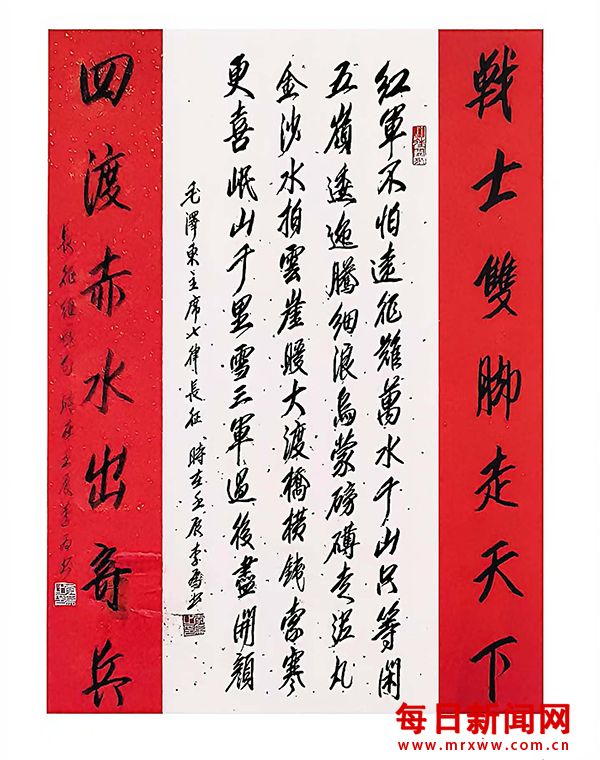 戰士雙脚走天下
紅軍不怕遠征難萬水千山只等閑
五嶺逶迤騰細浪烏蒙磅礴走泥丸
金沙水拍雲崖暖大渡橋橫鐵索寒
更喜岷山千里雪三軍過後盡開顏
毛澤東主席七律長征 時在壬辰李書
四渡赤水出奇兵
長征組歌句 時在壬辰李書
每日新闻网
www.mrxww.com.cn